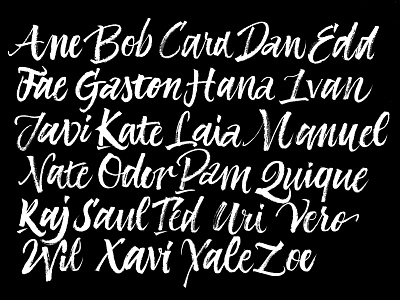 Ane Bob Card Dan Edd
Fae Gaston Hana Ivan
Javi Kate Laia Manuel
Nate Odor Pam Quique
Raj Saul Ted Uri Vero
Wil Xavi Yale Zoe